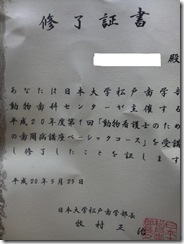 修了証書
殿
あなたは日本大学松戸歯学部
動物歯科センターが主催する
平成20年度第1回「動物看護士のため
の歯周病講座ベーシックコース」を受講
し修了したことを証します
平成20年5月25日
日本大学松戸歯学部長
牧村正治